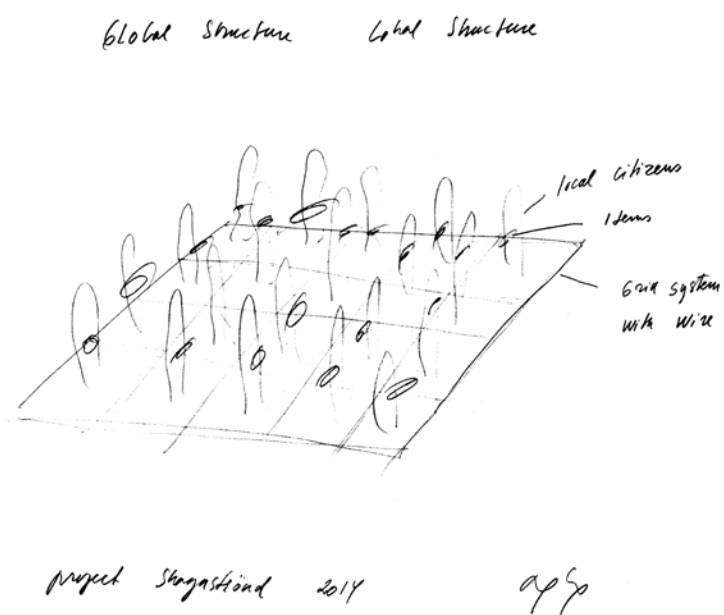 Global Structure Lokal Structure
local citizens
Items
Grid system
with wire
project Skagaströnd 2014